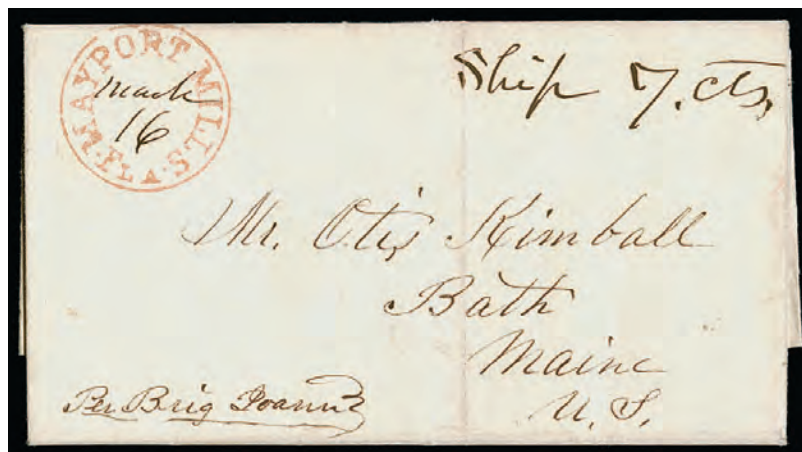 MAYPORT MILLS Fla.
March
16
Ship 7. cts.
Mr. Otis Kimball
Bath
Maine
U. S.
Per Brig Joann